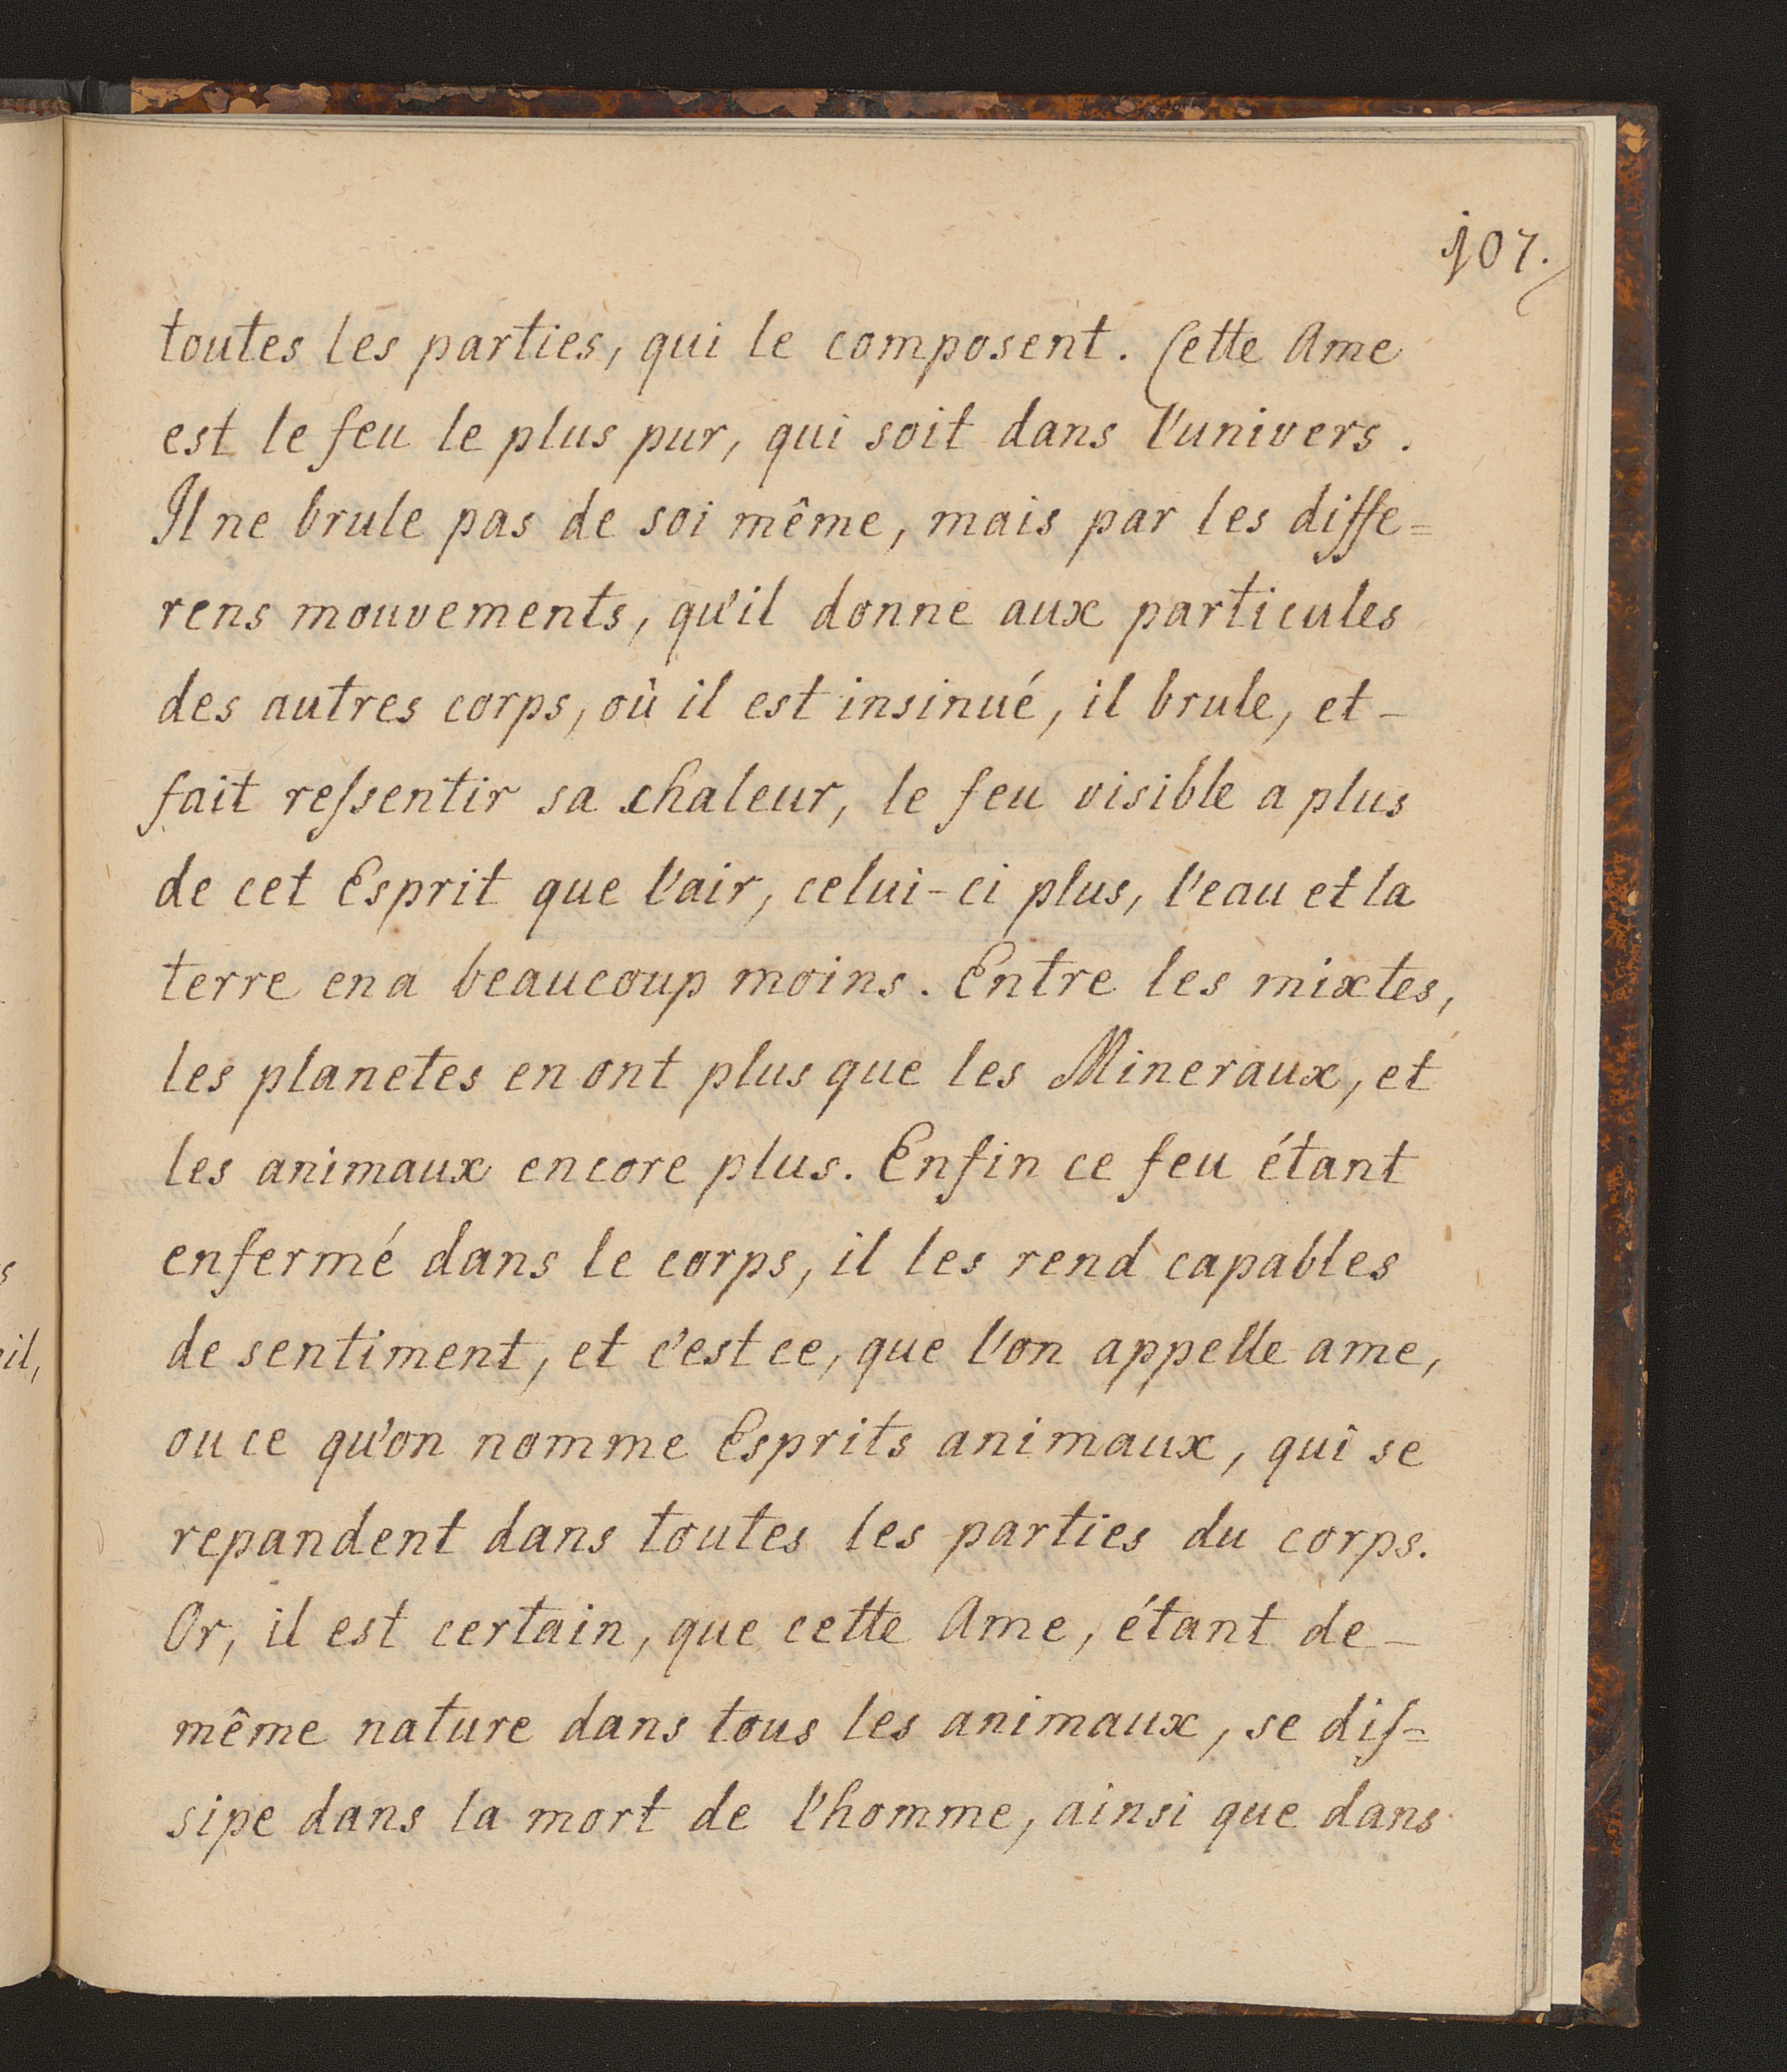 107.
toutes les parties, qui le composent. Cette Ame
est le feu le plus pur, qui soit dans l'univers.
Il ne brule pas de soi même, mais par les diffe=
rens mouvements, qu'il donne aux particules
des autres corps, où il est insinué, il brule, et -
fait reſsentir sa chaleur, le feu visible a plus
de cet Esprit que l'air, celui-ci plus, l'eau et la
terre en a beaucoup moins. Entre les mixtes,
les planetes en ont plus que les Mineraux, et
les animaux encore plus. Enfin ce feu étant
enfermé dans le corps, il les rend capables
de sentiment, et c'est ce, que l'on appelle ame,
ou ce qu'on nomme Esprits animaux, qui se
repandent dans toutes les parties du corps.
Or, il est certain, que cette Ame, étant de -
même nature dans tous les animaux, se diſ=
sipe dans la mort de l'homme, ainsi que dans